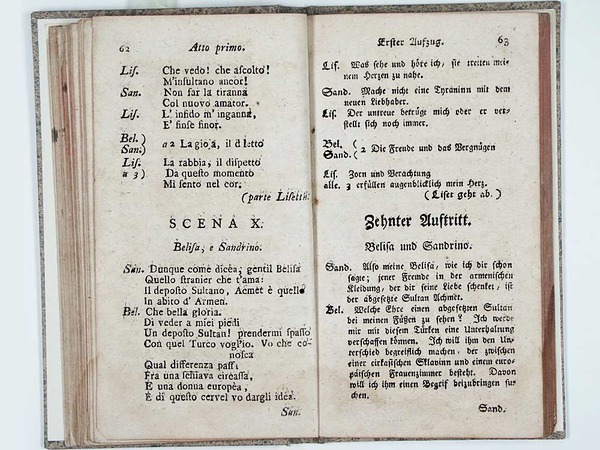 62 Atto primo.
Lis. Che vedo! che ascolto!
M'insultano ancor!
San. Non far la tiranna
Col nuovo amator.
Lis. L' infido m' inganna,
E' finse finor.
Bel. )
San. ) a 2 La gioja, il diletto
Lis. La rabbia, il dispetto
a 3 ) Da questo momento
Mi sento nel cor.
(parte Lisetta.
SCENA X.
Belisa, e Sandrino.
San. Dunque come dicea, gentil Belisa
Quello stranier che t'ama:
Il deposto Sultano, Acmet è quello
In abito d' Armen.
Bel. Che bella gloria.
Di veder a miei piedi
Un deposto Sultan! prendermi spasso
Con quel Turco voglio. Vo che co-
nosca
Qual differenza passi
Fra una schiava circassa,
E una donna europèa,
E di questo cervel vo dargli idea.
San.
Erster Aufzug. 63
Lis. Was sehe und höre ich, sie treten mei-
nem Herzen zu nahe.
Sand. Mache nicht eine Tyraninn mit dem
neuen Liebhaber.
Lis. Der untreue betrüge mich oder er ver-
stellt sich noch immer.
Bel. (
Sand. ( 2 Die Freude und das Vergnügen
Lis. Zorn und Verachtung
alle. 3 erfüllen augenblicklich mein Herz.
(Liset geht ab.)
Zehnter Auftritt.
Belisa und Sandrino.
Sand. Also meine Belisa, wie ich dir schon
sagte; jener Fremde in der armenischen
Kleidung, der dir seine Liebe schenket, ist
der abgesetzte Sultan Achmet.
Bel. Welche Ehre einen abgesetzten Sultan
bei meinen Füßen zu sehen? Ich werde
mir mit diesem Türken eine Unterhaltung
verschaffen können. Ich will ihm den Un-
terschied begreiflich machen, der zwischen
einer cirkassischen Sklavinn und einem euro-
päischen Frauenzimmer besteht. Davon
will ich ihm einen Begrif beizubringen su-
chen.
Sand.